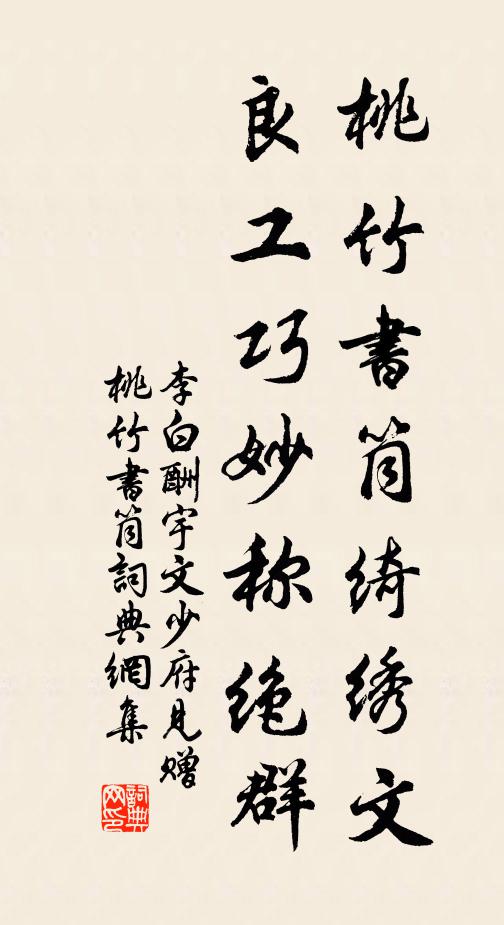 桃竹書筒綺绣文
良工巧妙称绝群
李白酬宇文少府見贈
桃竹書筒詞典網集
詞典网印